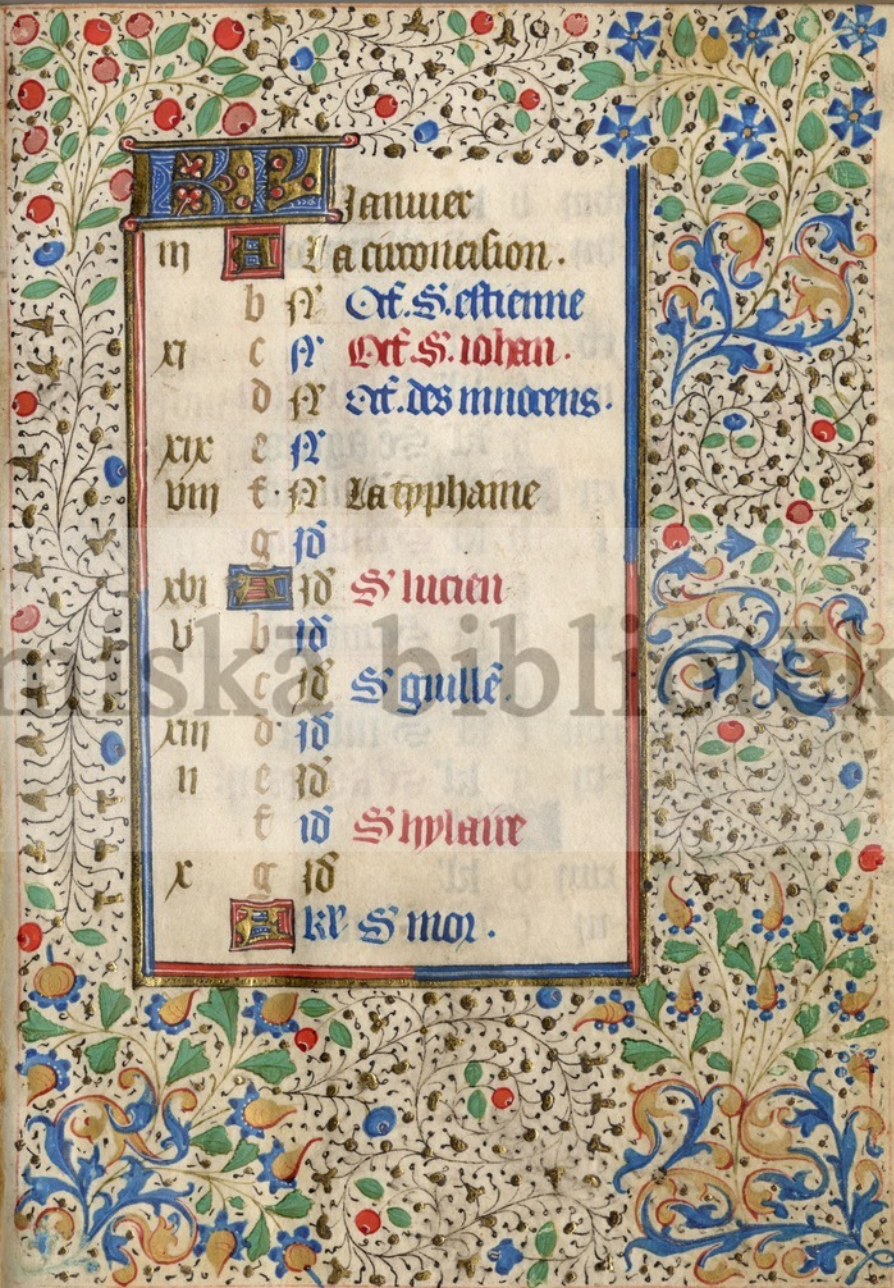 KL Januier
iii A La circoncision.
b N Oct. S. estienne
xi c N Oct. S. iohan.
d N Oct. des innocens.
xix e N
viii f N La typhaine
g id
xvi A id S lucien
v b id
c id S guille.
xiii d id
ii e id
f id S hylaire
x g id
A kl S mor.
miskā bibliotēk